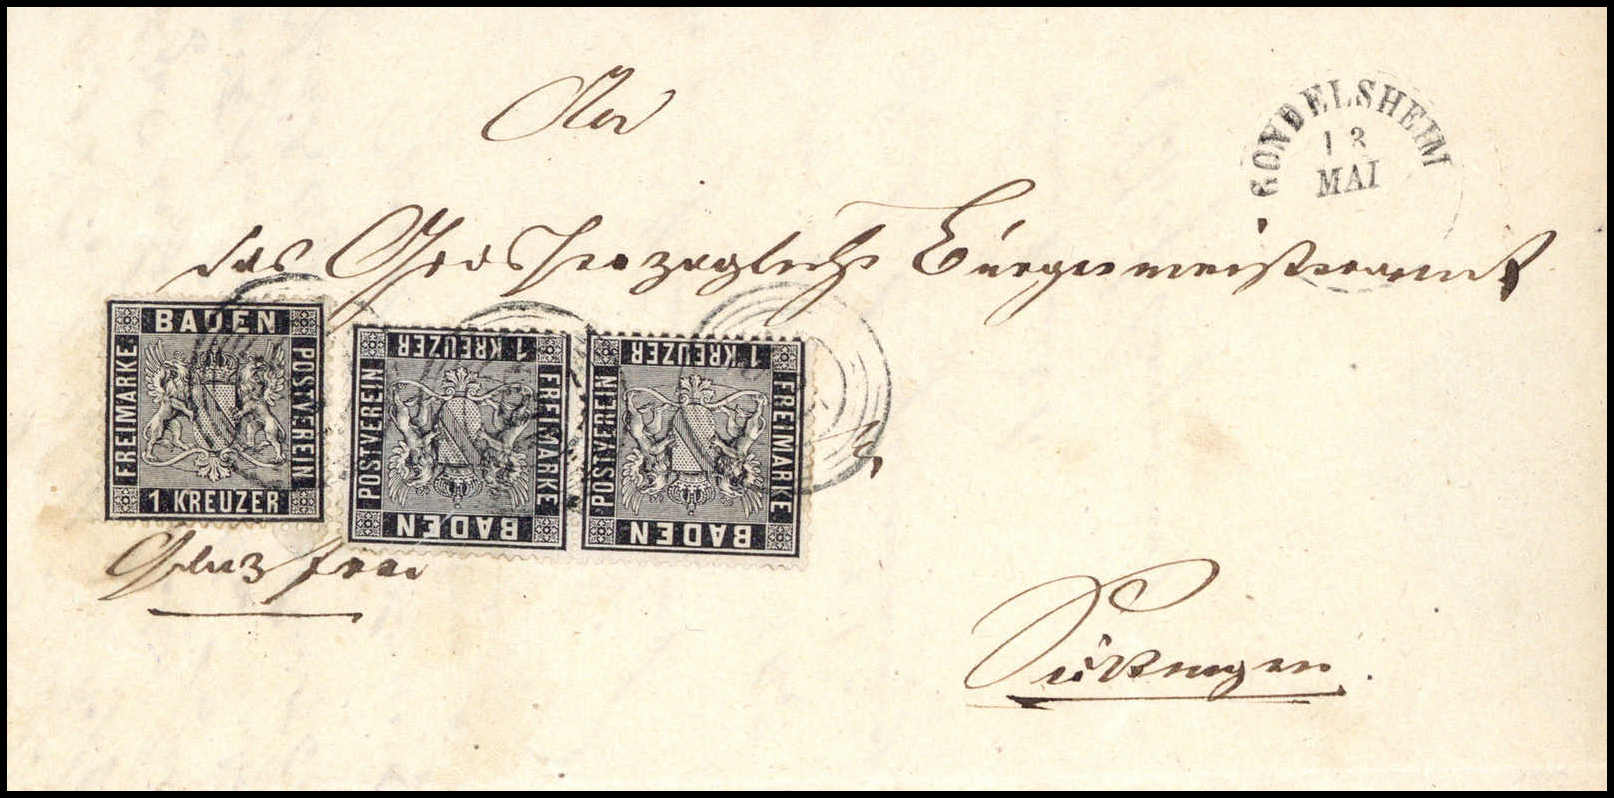 An
GONDELSHEIM
13
MAI
das Großherzogliche Bürgermeisteramt
BADEN
FREIMARKE
POSTVEREIN
1 KREUZER
1 KREUZER
POSTVEREIN
FREIMARKE
BADEN
1 KREUZER
POSTVEREIN
FREIMARKE
BADEN
frei